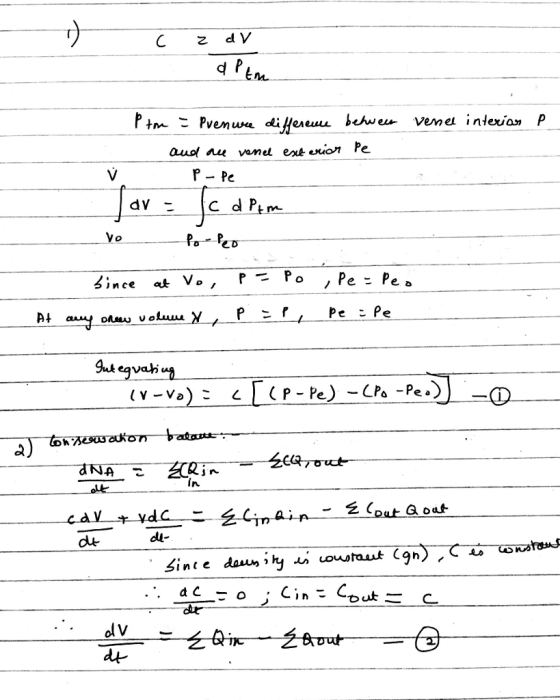 1) C = dV / dPtm
Ptm = Pressure difference between vessel interior P
and the vessel exterior Pe
∫_{V0}^{V} dV = ∫_{P0-Pe0}^{P-Pe} C dPtm
Since at V0, P = P0, Pe = Pe0
At any volume V, P = P, Pe = Pe
Integrating
(V-V0) = C [(P-Pe) - (P0-Pe0)] - ①
2) Conservation balance:-
dNA/dt = ΣCQ,in - ΣCQ,out
C dV/dt + V dC/dt = ΣCin Qin - ΣCout Qout
Since density is constant (gn), C is constant
∴ dC/dt = 0 ; Cin = Cout = C
∴ dV/dt = ΣQin - ΣQout - ②